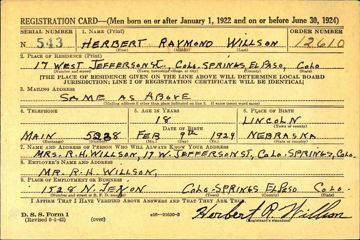 REGISTRATION CARD—(Men born on or after January 1, 1922 and on or before June 30, 1924)
SERIAL NUMBER 1. NAME (Print) ORDER NUMBER
N 543 HERBERT RAYMOND WILLSON 12610
2. PLACE OF RESIDENCE (Print)
17 WEST JEFFERSON ST. COLO. SPRINGS, EL PASO, COLO
[THE PLACE OF RESIDENCE GIVEN ON THE LINE ABOVE WILL DETERMINE LOCAL BOARD
JURISDICTION; LINE 2 OF REGISTRATION CERTIFICATE WILL BE IDENTICAL]
3. MAILING ADDRESS
SAME AS ABOVE
[Mailing address if other than place indicated on line 2. If same insert word same]
4. TELEPHONE 5. AGE IN YEARS 6. PLACE OF BIRTH
18 LINCOLN
DATE OF BIRTH
MAIN 5238 FEB 9th NEBRASKA
7. NAME AND ADDRESS OF PERSON WHO WILL ALWAYS KNOW YOUR ADDRESS
MRS. R. H. WILLSON, 17 W. JEFFERSON ST, COLO. SPRINGS, COLO.
8. EMPLOYER'S NAME AND ADDRESS
MR. R. H. WILLSON,
9. PLACE OF EMPLOYMENT OR BUSINESS
1528 N. COLO. SPRINGS EL PASO COLO.
I AFFIRM THAT I HAVE VERIFIED ABOVE ANSWERS AND THAT THEY ARE TRUE.
D. S. S. Form 1
(over)
Herbert R. Willson